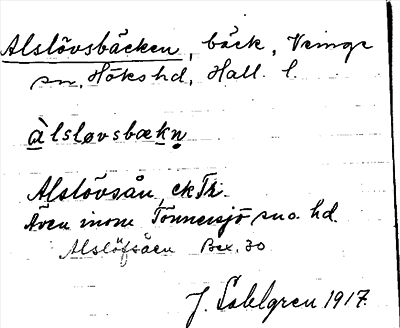 Alslövsbäcken, bäck, Veinge
sn, Höks hd, Hall. l.
àlsløvsbækn̥
Alslövsån, ekTh.
Även inom Tönnersjö sn o. hd.
Alslöfsåen Bex. 30
J. Sahlgren 1917.